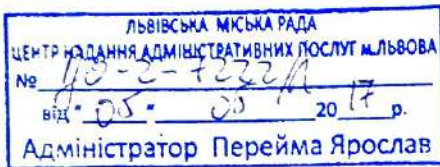 ЛЬВІВСЬКА МІСЬКА РАДА
ЦЕНТР НАДАННЯ АДМІНІСТРАТИВНИХ ПОСЛУГ м.ЛЬВОВА
№ -2-7222/Л
від "05" 05 2017 р.
Адміністратор Перейма Ярослав